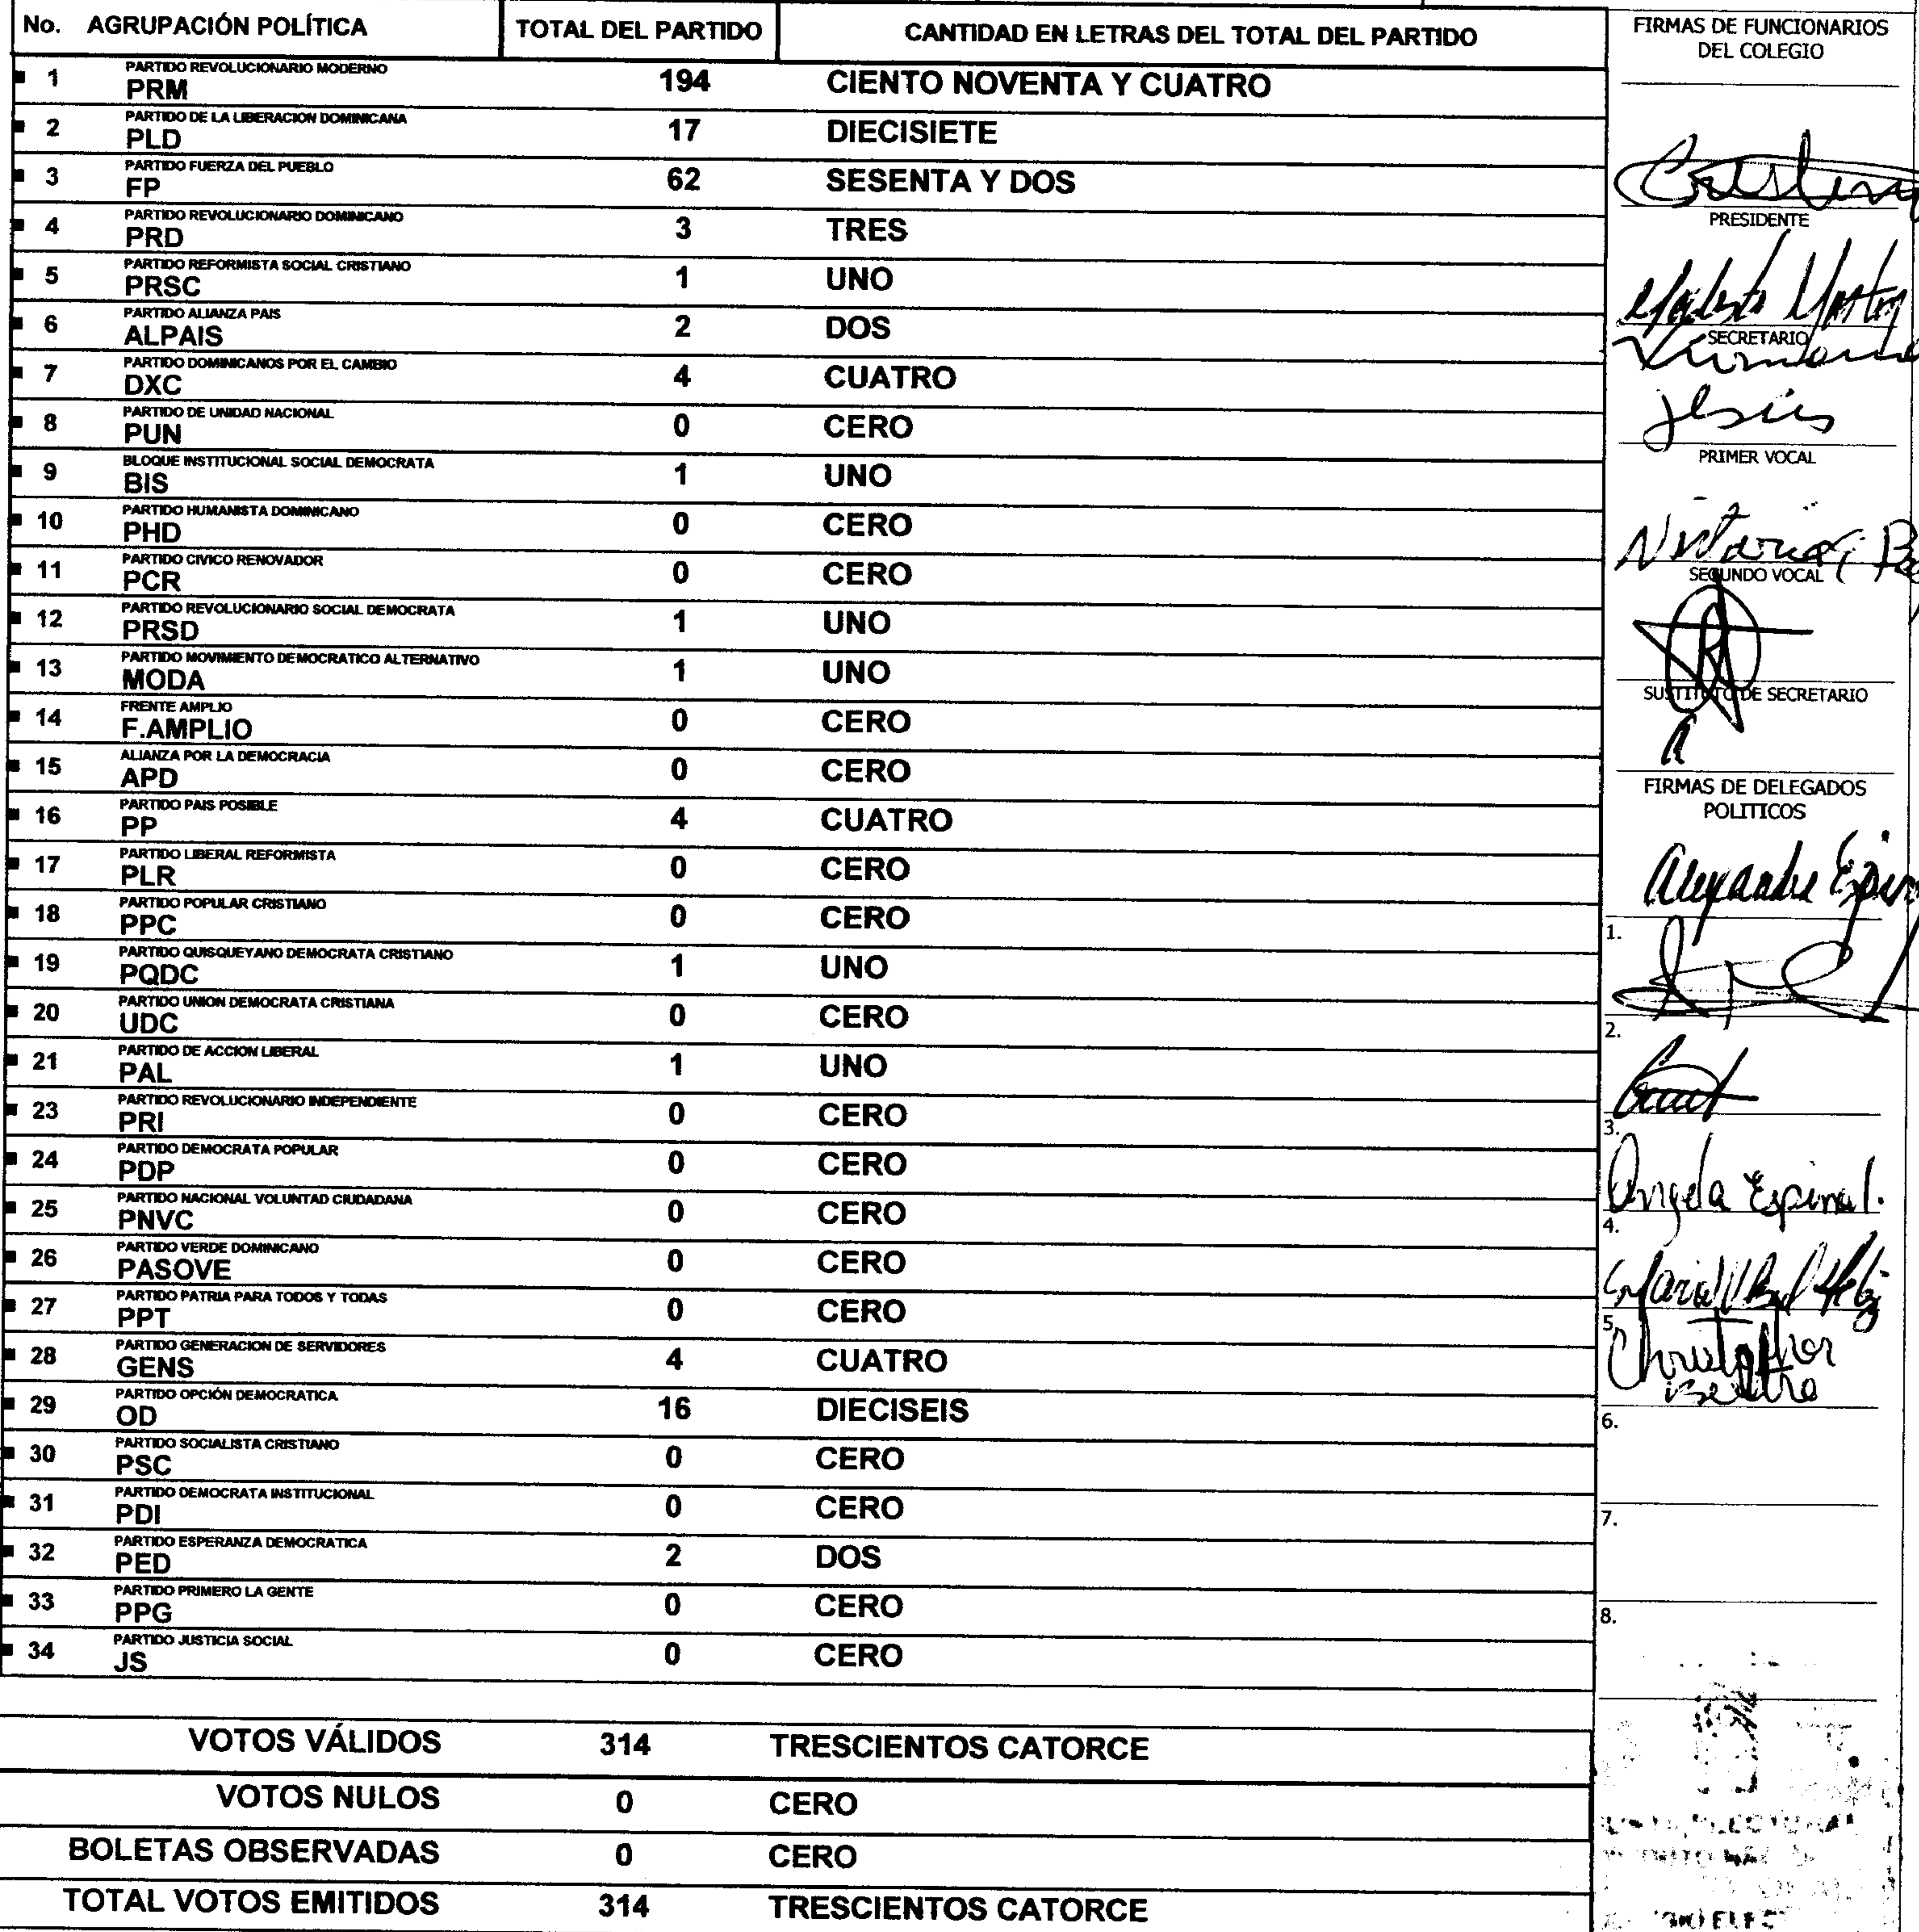 No. AGRUPACIÓN POLÍTICA TOTAL DEL PARTIDO CANTIDAD EN LETRAS DEL TOTAL DEL PARTIDO
PARTIDO REVOLUCIONARIO MODERNO
1 PRM 194 CIENTO NOVENTA Y CUATRO
PARTIDO DE LA LIBERACION DOMINICANA
2 PLD 17 DIECISIETE
PARTIDO FUERZA DEL PUEBLO
3 FP 62 SESENTA Y DOS
PARTIDO REVOLUCIONARIO DOMINICANO
4 PRD 3 TRES
PARTIDO REFORMISTA SOCIAL CRISTIANO
5 PRSC 1 UNO
PARTIDO ALIANZA PAIS
6 ALPAIS 2 DOS
PARTIDO DOMINICANOS POR EL CAMBIO
7 DXC 4 CUATRO
PARTIDO DE UNIDAD NACIONAL
8 PUN 0 CERO
BLOQUE INSTITUCIONAL SOCIAL DEMOCRATA
9 BIS 1 UNO
PARTIDO HUMANISTA DOMINICANO
10 PHD 0 CERO
PARTIDO CIVICO RENOVADOR
11 PCR 0 CERO
PARTIDO REVOLUCIONARIO SOCIAL DEMOCRATA
12 PRSD 1 UNO
PARTIDO MOVIMIENTO DEMOCRATICO ALTERNATIVO
13 MODA 1 UNO
FRENTE AMPLIO
14 F.AMPLIO 0 CERO
ALIANZA POR LA DEMOCRACIA
15 APD 0 CERO
PARTIDO PAIS POSIBLE
16 PP 4 CUATRO
PARTIDO LIBERAL REFORMISTA
17 PLR 0 CERO
PARTIDO POPULAR CRISTIANO
18 PPC 0 CERO
PARTIDO QUISQUEYANO DEMOCRATA CRISTIANO
19 PQDC 1 UNO
PARTIDO UNION DEMOCRATA CRISTIANA
20 UDC 0 CERO
PARTIDO DE ACCION LIBERAL
21 PAL 1 UNO
PARTIDO REVOLUCIONARIO INDEPENDIENTE
23 PRI 0 CERO
PARTIDO DEMOCRATA POPULAR
24 PDP 0 CERO
PARTIDO NACIONAL VOLUNTAD CIUDADANA
25 PNVC 0 CERO
PARTIDO VERDE DOMINICANO
26 PASOVE 0 CERO
PARTIDO PATRIA PARA TODOS Y TODAS
27 PPT 0 CERO
PARTIDO GENERACION DE SERVIDORES
28 GENS 4 CUATRO
PARTIDO OPCIÓN DEMOCRATICA
29 OD 16 DIECISEIS
PARTIDO SOCIALISTA CRISTIANO
30 PSC 0 CERO
PARTIDO DEMOCRATA INSTITUCIONAL
31 PDI 0 CERO
PARTIDO ESPERANZA DEMOCRATICA
32 PED 2 DOS
PARTIDO PRIMERO LA GENTE
33 PPG 0 CERO
PARTIDO JUSTICIA SOCIAL
34 JS 0 CERO
VOTOS VÁLIDOS 314 TRESCIENTOS CATORCE
VOTOS NULOS 0 CERO
BOLETAS OBSERVADAS 0 CERO
TOTAL VOTOS EMITIDOS 314 TRESCIENTOS CATORCE
FIRMAS DE FUNCIONARIOS
DEL COLEGIO
PRESIDENTE
SECRETARIO
Jesús
PRIMER VOCAL
SEGUNDO VOCAL
SUSTITUTO DE SECRETARIO
FIRMAS DE DELEGADOS
POLITICOS
1.
2.
3.
Angela Espinal.
4.
5.
6.
7.
8.